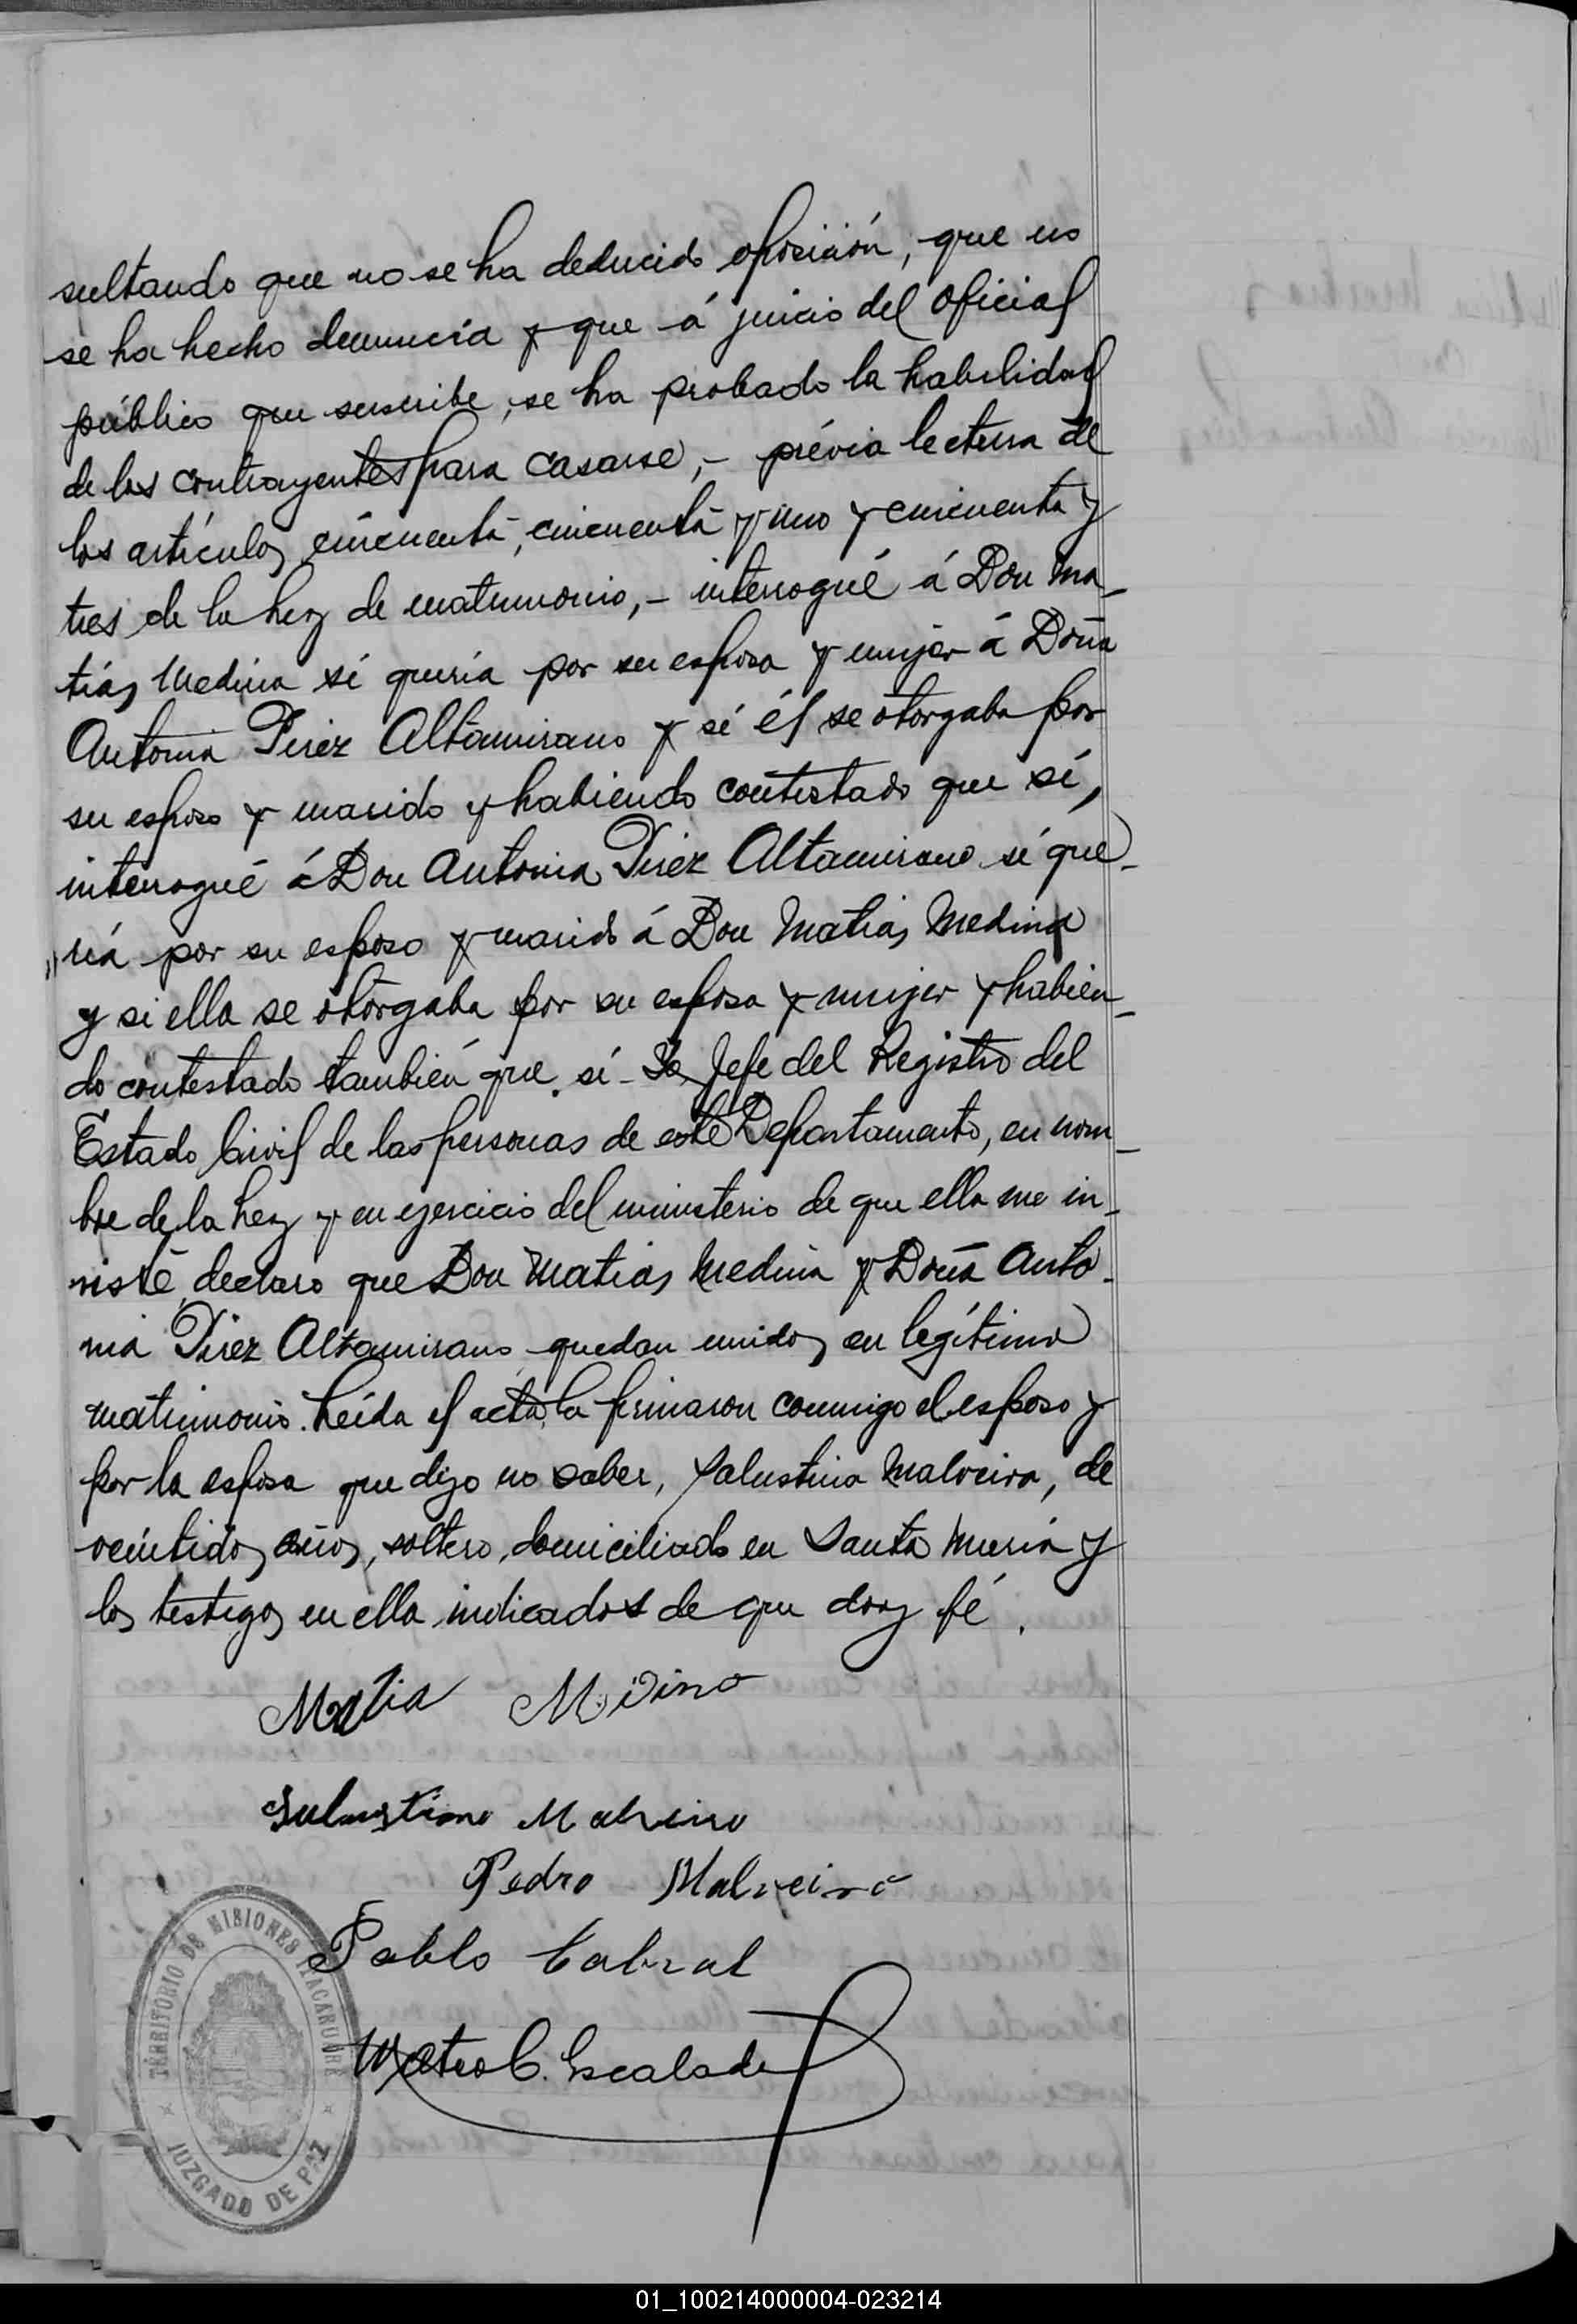 sultando que no se ha deducido oposición, que no
se ha hecho denuncia y que á juicio del oficial
público que suscribe, se ha probado la habilidad
de los contrayentes para casarse,- prévia lectura de
los artículos cincuenta, cincuenta y uno y cincuenta y
tres de la Ley de matrimonio,- interrogué á Don Ma-
tías Medina sí quería por su esposa y mujer á Doña
Antonia Pirez Altamirano y sé él se otorgaba por
su esposo y marido y habiendo contestado que sí,
interrogué á Don Antonia Pirez Altamirano sí que-
"ría por su esposo y marido á Don Matías Medina
y si ella se otorgaba por su esposa y mujer y habien-
do contestado también que sí - Yo, Jefe del Registro del
Estado Civil de las personas de este Departamento, en nom-
bre de la Ley y en ejercicio del ministerio de que ella me in-
viste, declaro que Don Matías Medina y Doña Anto-
nia Pirez Altamirano quedan unidos en legítimo
matrimonio. Leída el acta, la firmaron conmigo el esposo y
por la esposa que dijo no saber, Salustino Malveira, de
veintidos años, soltero, domiciliado en Santa María y
los testigos en ella indicados de que doy fé.
Matia
Salustino Malveiro
Pedro Malveira
Pablo Cabral
Mateo C. Escalada
TERRITORIO DE MISIONES ITACARUARE
JUZGADO DE PAZ
01_100214000004-023214